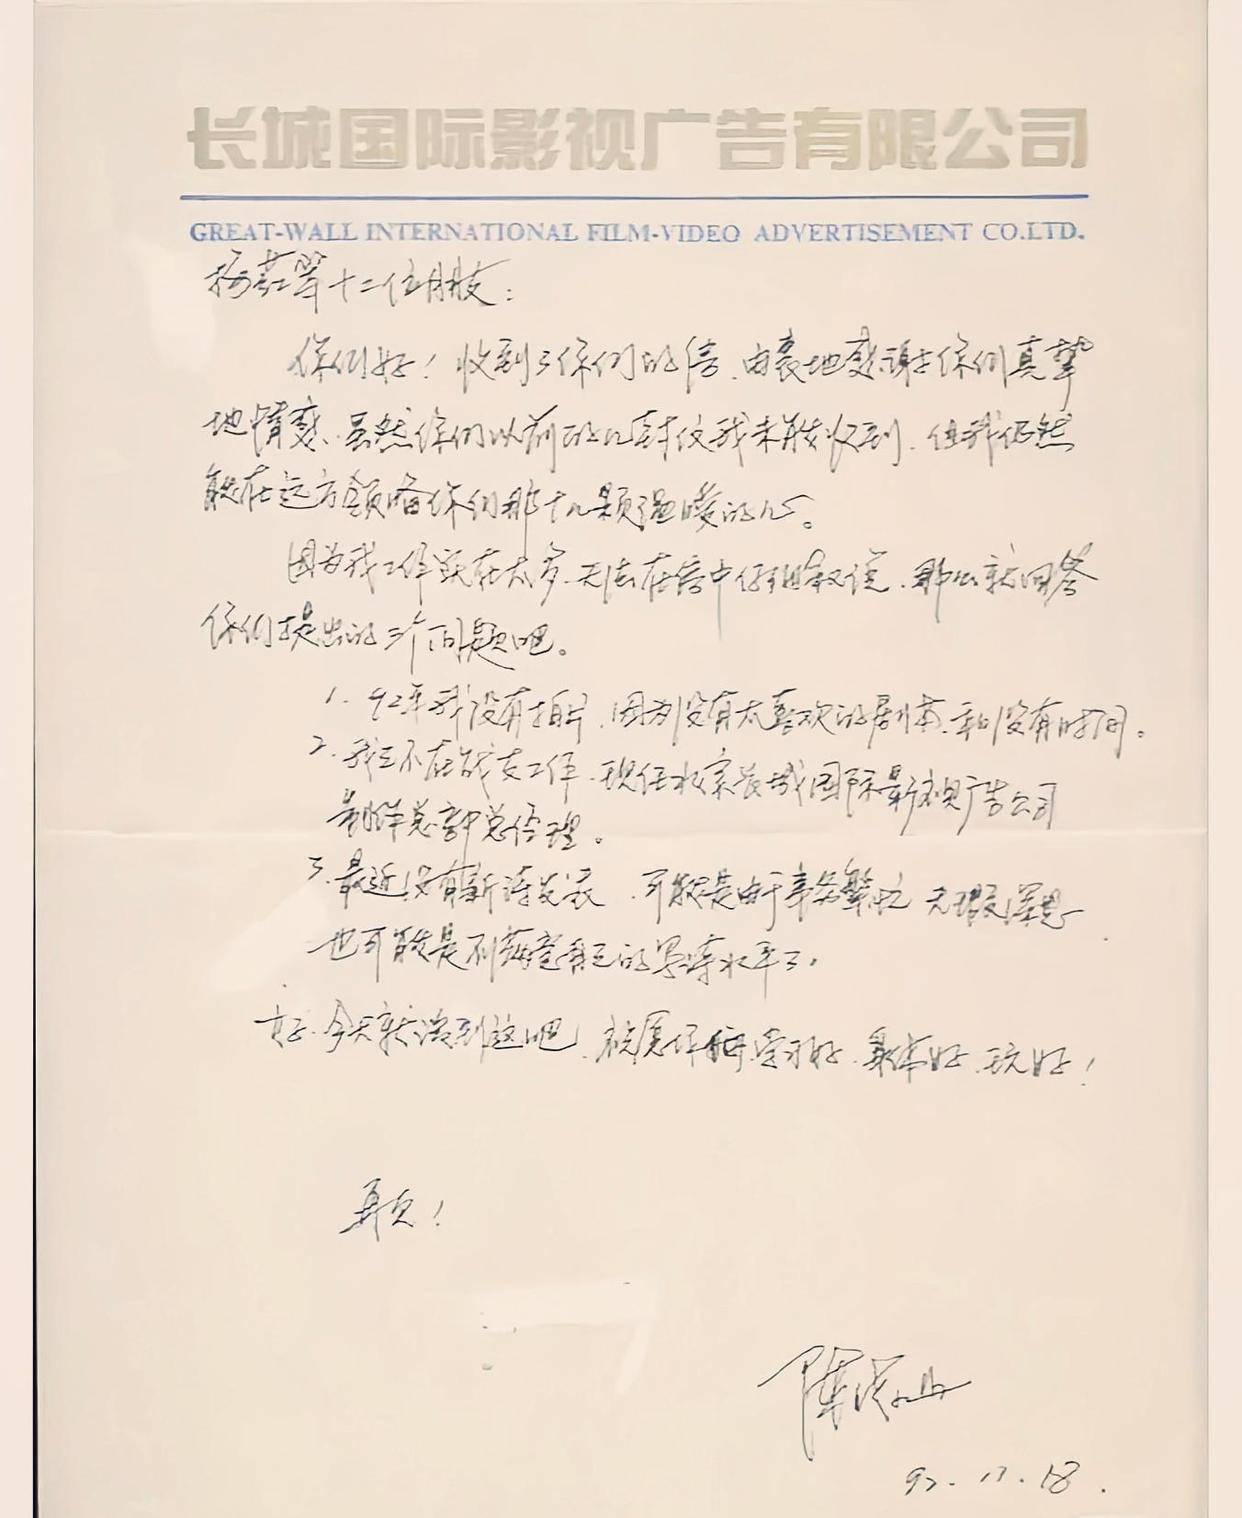 长城国际影视广告有限公司
GREAT-WALL INTERNATIONAL FILM-VIDEO ADVERTISEMENT CO.LTD.
杨红翠十二位朋友：
你们好！收到了你们的信、由衷地感谢你们真挚
地情感、虽然你们以前的几封仪我未能收到、但我仍然
能在远方领略你们那十几颗温暖的心。
因为我工作现在太多、无法在信中仔细叙说、那么就回答
你们提出的三个问题吧。
1. 92年我没有拍片、因为没有太喜欢的剧本、和没有时间。
2. 我已不在战友工作、现任北京长城国际影视广告公司
制作总部总经理。
3. 最近没有新诗发表、可能是由于事务繁忙 无暇深思
也可能是到药自己的水平了。
好、今天就谈到这吧、祝愿你们学习好、身体好、玩好！
再见！
92. 11. 18.